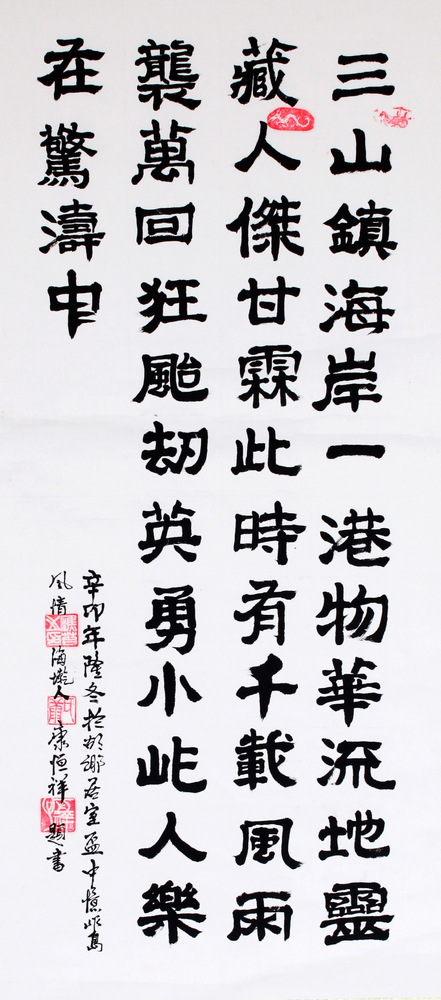 三山鎮海岸一港物華流地靈
藏人傑甘霖此時有千載風雨
襲萬回狂颱刼英勇小岞人樂
在驚濤中
辛卯年隆冬於居室中憶岞島
風情海人康恒祥題書